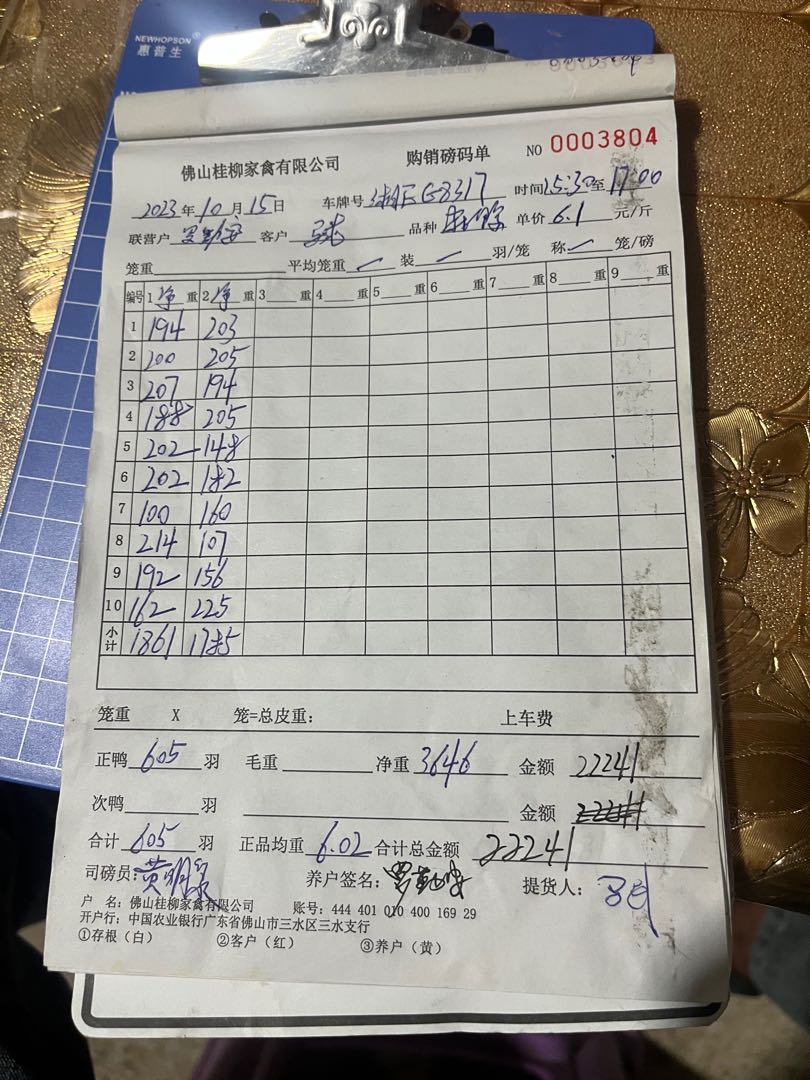 NEWHOPSON
惠普生
佛山桂柳家禽有限公司 购销磅码单 NO 0003804
2023年10月15日 车牌号 EG8317 时间15:30至17:00
联营户 客户 品种 单价6.1元/斤
笼重 平均笼重 / 装 / 羽/笼 称 / 笼/磅
编号 1净重 2净重 3重 4重 5重 6重 7重 8重 9重
1 194 203
2 200 205
3 207 194
4 188 205
5 202 148
6 202 182
7 100 160
8 214 107
9 192 156
10 162 225
小计 1861 1785
笼重 X 笼=总皮重: 上车费
正鸭605羽 毛重 净重3646 金额22241
次鸭 羽 金额
合计605羽 正品均重6.02 合计总金额22241
司磅员: 养户签名: 提货人:
户 名: 佛山桂柳家禽有限公司 账号: 444 401 010 400 169 29
开户行: 中国农业银行广东省佛山市三水区三水支行
①存根(白) ②客户(红) ③养户(黄)